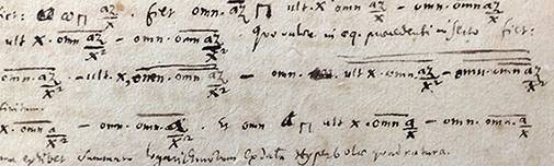 fiet: ω ⊓ az/x . fiet omn. az/x ⊓ ult. x omn az/x − omn. omn. az/x
ult x . omn. az/x² − omn. omn az/x² . Quo valore in eq. praecedenti inserto fiet:
omn. az/x² − ult. x, omn. omn. az/x² − omn. ult x . omn. az/x² − omn. omn az/x²
x . omn a/x − omn. omn. a/x . Et omn ⊓ ult x . omn a/x − omn. omn. a/x
exhibet summam logarithmorum ex data Hyperbolae quadratura.